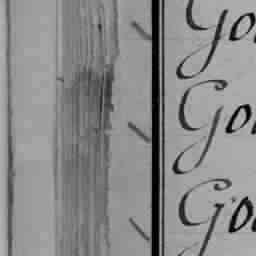 Go
Go
Go